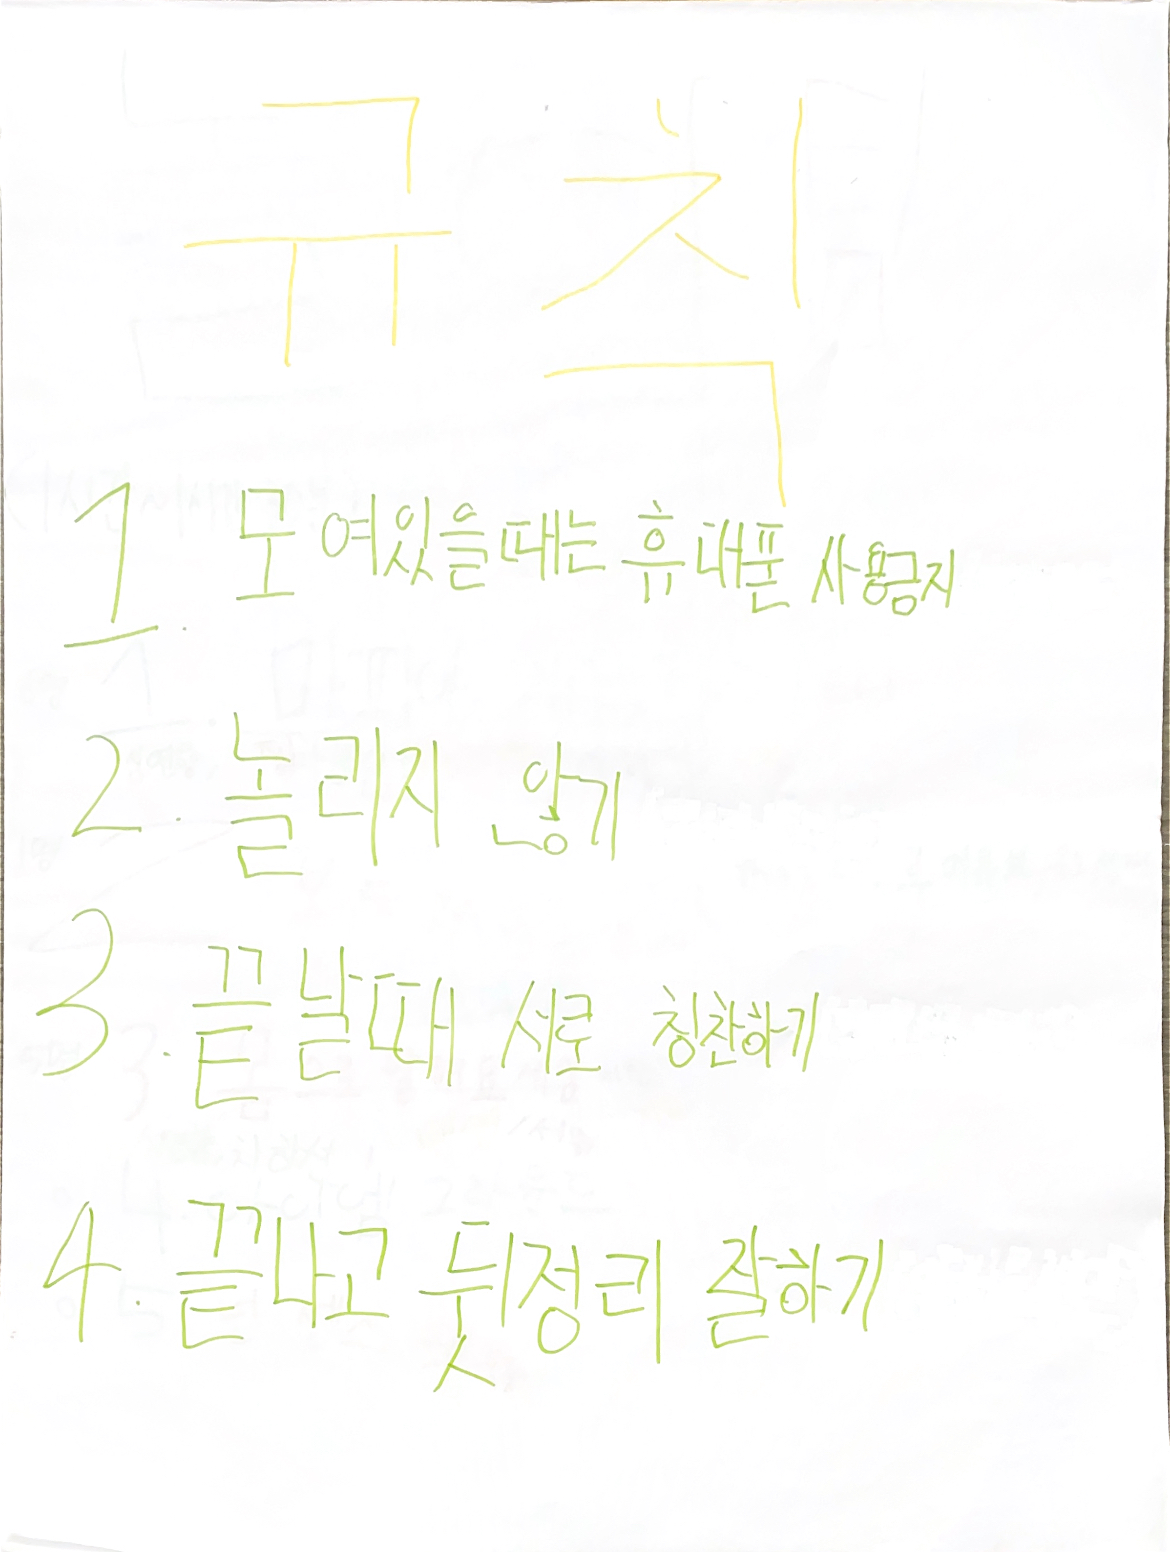 규칙
1. 모여있을때는 휴대폰 사용금지
2. 놀리지 않기
3. 끝날때 서로 칭찬하기
4. 끝나고 뒷정리 잘하기